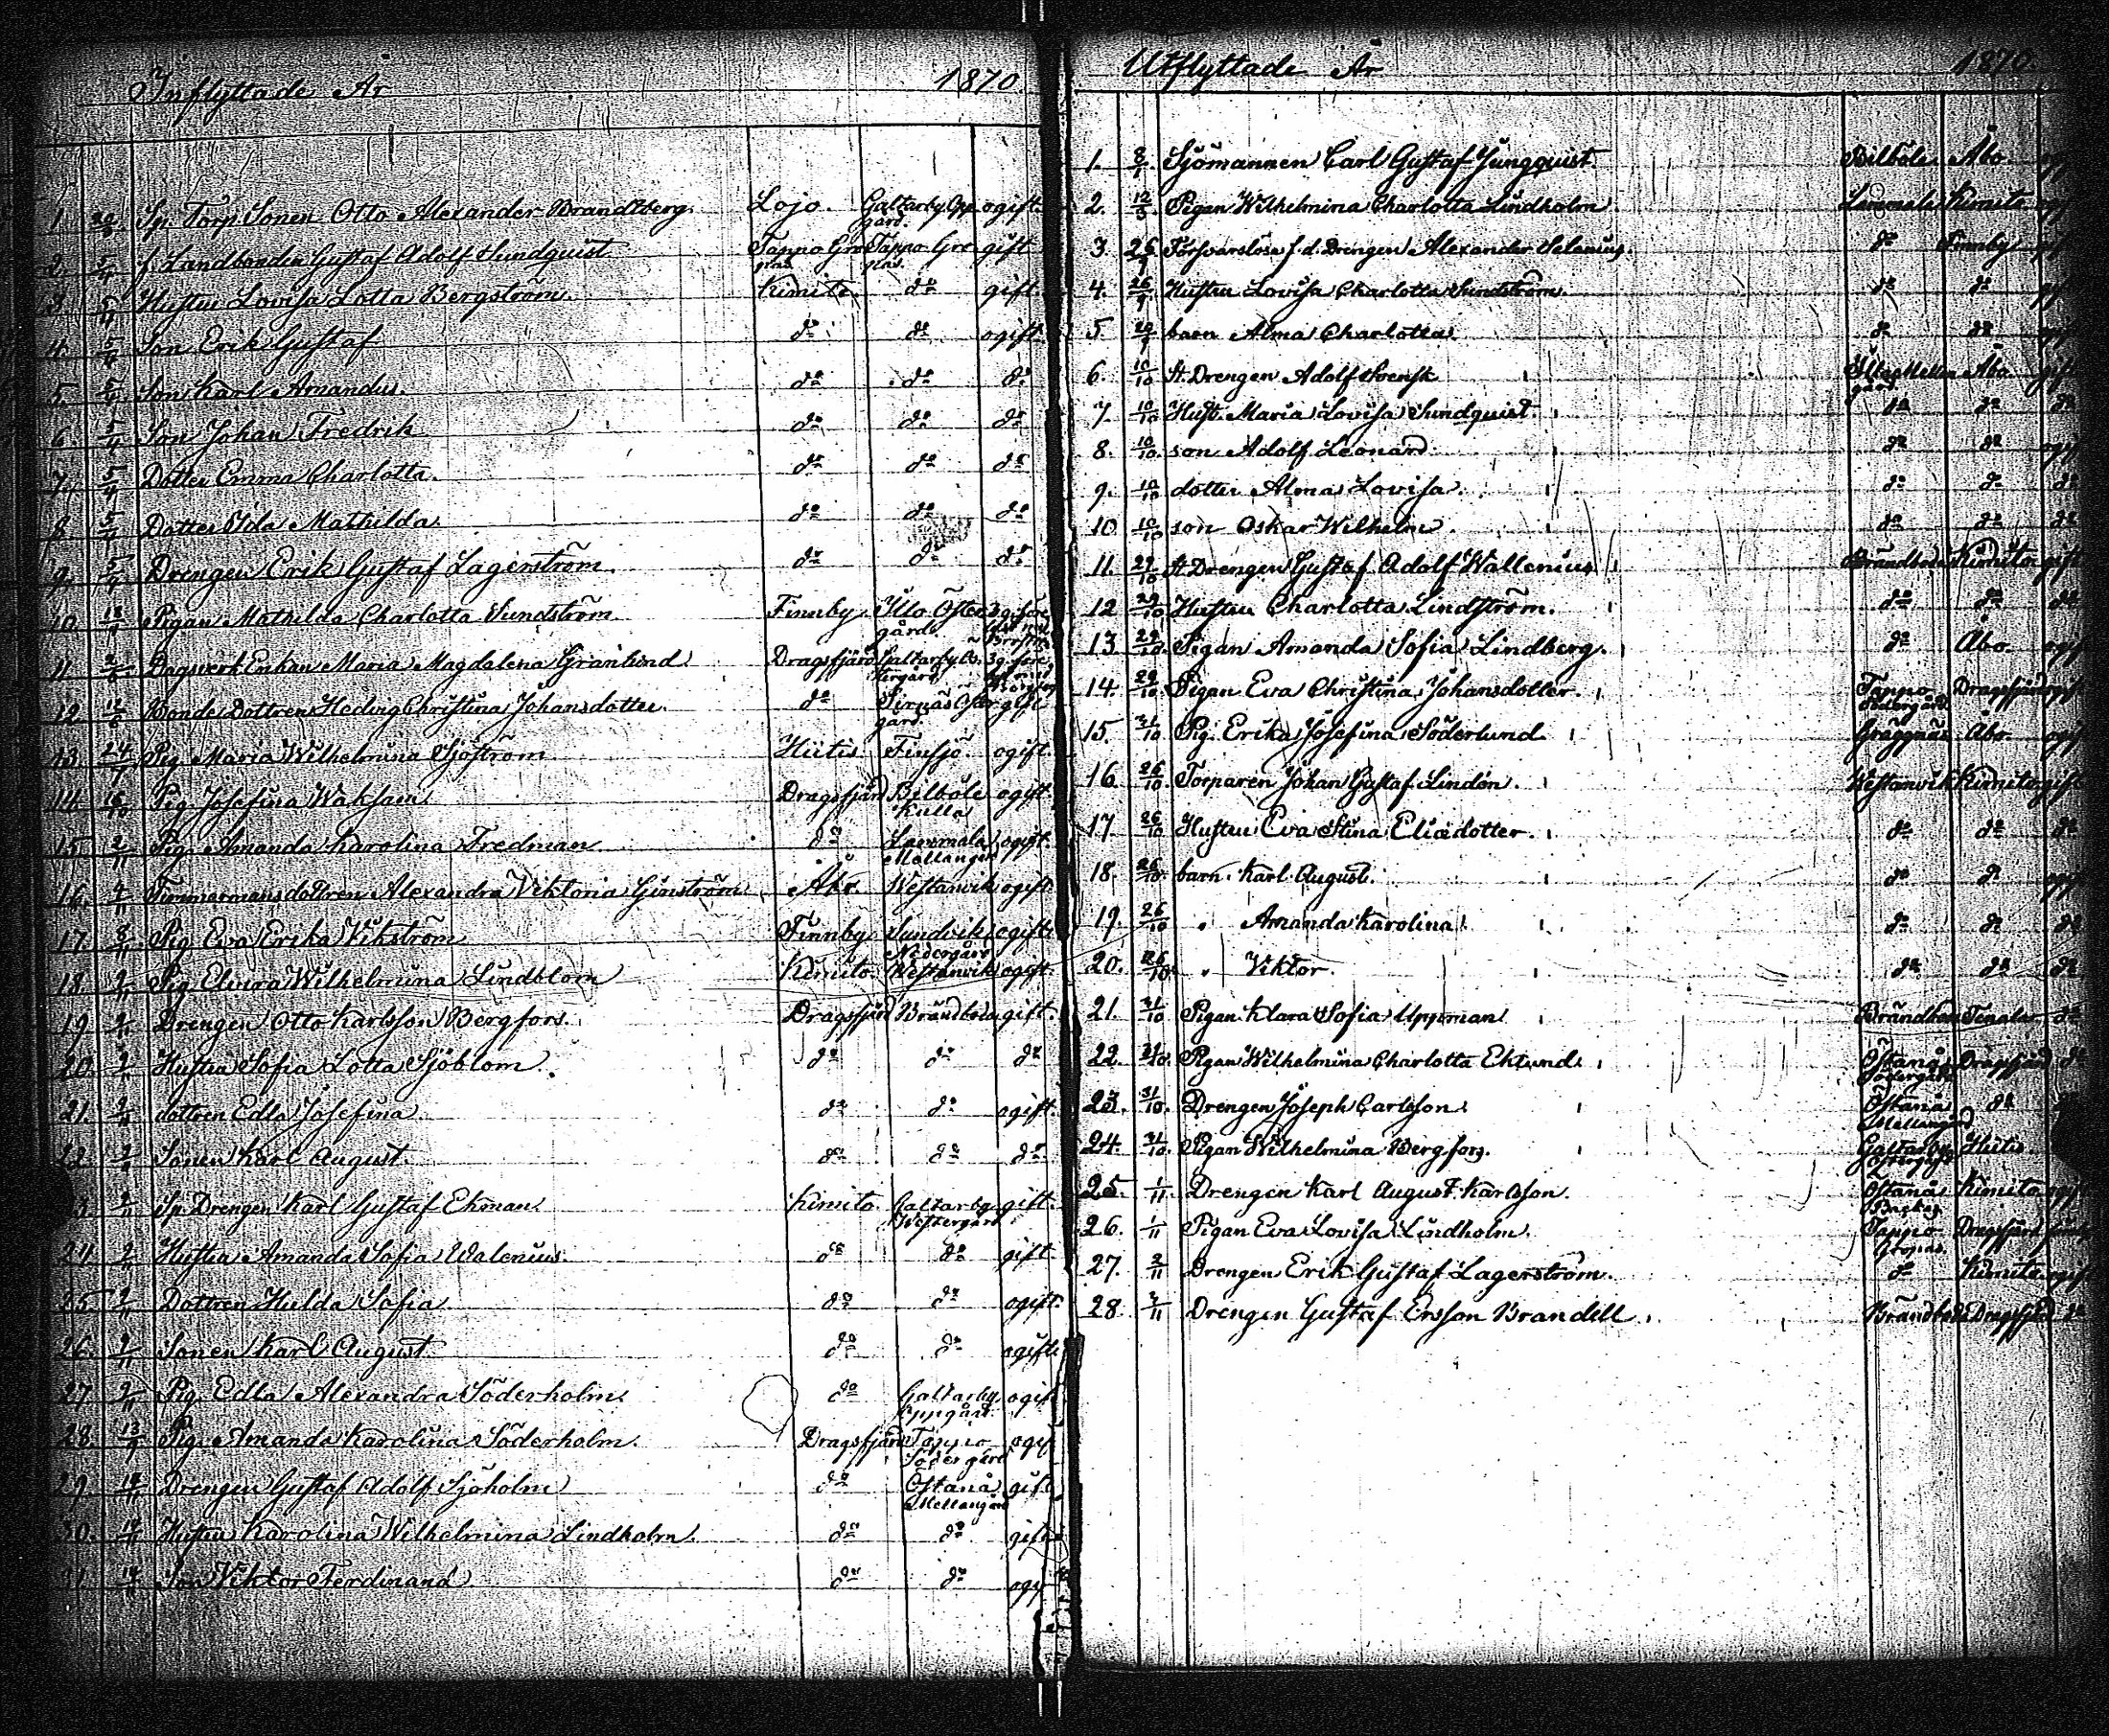 Inflyttade År 1870
1. Sp. Torp. Sonen Otto Alexander Brandtberg. Lojo. Galtarby Opp ogift.
gård.
2. 5/4 f. Landbonden Gustaf Adolf Sundquist Tappo Gre Tappo Gre gift
3 5/4 Hustru Lovisa Lotta Bergström. Kimito. do gift.
4. 5/4 Son Erik Gustaf do do ogift.
5. 5/4 Son Karl Amandus. do do do
6 5/4 Son Johan Fredrik do do do
7. 5/4 Dotter Emma Charlotta. do do do
8 5/4 Dotter Ida Mathilda do do do
9. 5/4 Drengen Erik Gustaf Lagerström. do do do
10. Pigan Mathilda Charlotta Sundström Finnby. Illo Öster
gård.
11 Dagsverk Enkan Maria Magdalena Granlund Dragsfjärd Galtarby
12 Bonde Dottren Hedvig Christina Johansdotter. do gift
gård.
13 24/7 Pig. Maria Wilhelmina Sjöström Hiitis Finsjö ogift.
14 Pig. Josefina Waksam Dragsfjärd Bilböle ogift.
Kulla
15 2/11 Pig. Amanda Karolina Fredman do Lammala ogift.
Mellangård
16. 4/11 Timmermansdottren Alexandra Viktoria Åbo. Westanvik ogift.
17. 8/11 Pig. Eva Erika Vikström Finnby Sundvik ogift.
Nedergård
18. 2/11 Pig. Elvira Wilhelmina Lindblom Kimito. Westanvik ogift.
19 2/11 Drengen Otto Karlsson Bergfors. Dragsfjärd Brändboda gift.
20. 2/11 Hustru Sofia Lotta Sjöblom. do do do
21. 2/11 dottren Edla Josefina do do ogift.
22 2/11 Sonen Karl August. do do do
3. 2/11 Sp. Drengen Karl Gustaf Ekman Kimito. Galtarby gift.
Westergård
24. 2/11 Hustru Amanda Sofia Walenius. do do gift
25. 2/11 Dottren Hulda Sofia do do ogift.
26. 2/11 Sonen Karl August do do ogift.
27 2/11 Pig. Edla Alexandra Söderholm. do Galtarby ogift
Oppgård
28. 13/9 Pig. Amanda Karolina Söderholm. Dragsfjärd Tappo ogif
Södergård
29. Drengen Gustaf Adolf Sjöholm do Östanå gift
Mellangård
30. Hustru Karolina Wilhelmina Lindholm. do do gift
31. Son Viktor Ferdinand do do ogif
Utflyttade År 1870.
1. Sjömannen Carl Gustaf Ljungquist. Bilböle Åbo.
2. Pigan Wilhelmina Charlotta Lindholm Lammala Kimito
3 26/9 Försvarslöse f. d. Drengen Alexander Selenius. do Finnby
4. 26/9 Hustru Lovisa Charlotta Sundström. do do
5 barn Alma Charlotta. do do
6. 10/10 St. Drengen Adolf Svensk Åbo gift
gård
7. 10/10 Hust. Maria Lovisa Sundquist do do do
8. 10/10 son Adolf Leonard do do
9. 10/10 dotter Alma Lovisa. do do do
10 10/10 son Oskar Wilhelm. do do do
11. 29/10 St. Drengen Gustaf Adolf Wallenius Brändboda Kimito gift
12 29/10 Hustru Charlotta Lindström. do do do
13 29/10 Pigan Amanda Sofia Lindberg. do Åbo.
14. 29/10 Pigan Eva Christina Johansdotter. Tappo Dragsfjärd
Södergård
15. 31/10 Pig. Erika Josefina Söderlund. Gräggnäs Åbo.
16. 26/10 Torparen Johan Gustaf Lindén. Westanvik Kimito gift
17 26/10 Hustru Eva Stina Eliædotter. do do do
18. 26/10. barn. Karl August. do do
19. 26/10 " Amanda Karolina do do do
20. 26/10 " Viktor. do do do
21. 31/10 Pigan Klara Sofia Uppman Brändboda Tenala do
22. 31/10. Pigan Wilhelmina Charlotta Eklund. Östanå Dragsfjärd do
Södergård
23. 31/10. Drengen Joseph Carlsson Östanå do
Mellangård
24. 31/10. Pigan Wilhelmina Bergfors. Galtarby Hiitis.
25. 1/11. Drengen Karl August Karlsson. Östanå Kimito
26. 1/11 Pigan Eva Lovisa Lindholm. Tappo Dragsfjärd
27. 2/11 Drengen Erik Gustaf Lagerström. do Kimito
28. 2/11 Drengen Gustaf Ersson Brandell Brändboda Dragsfjärd do